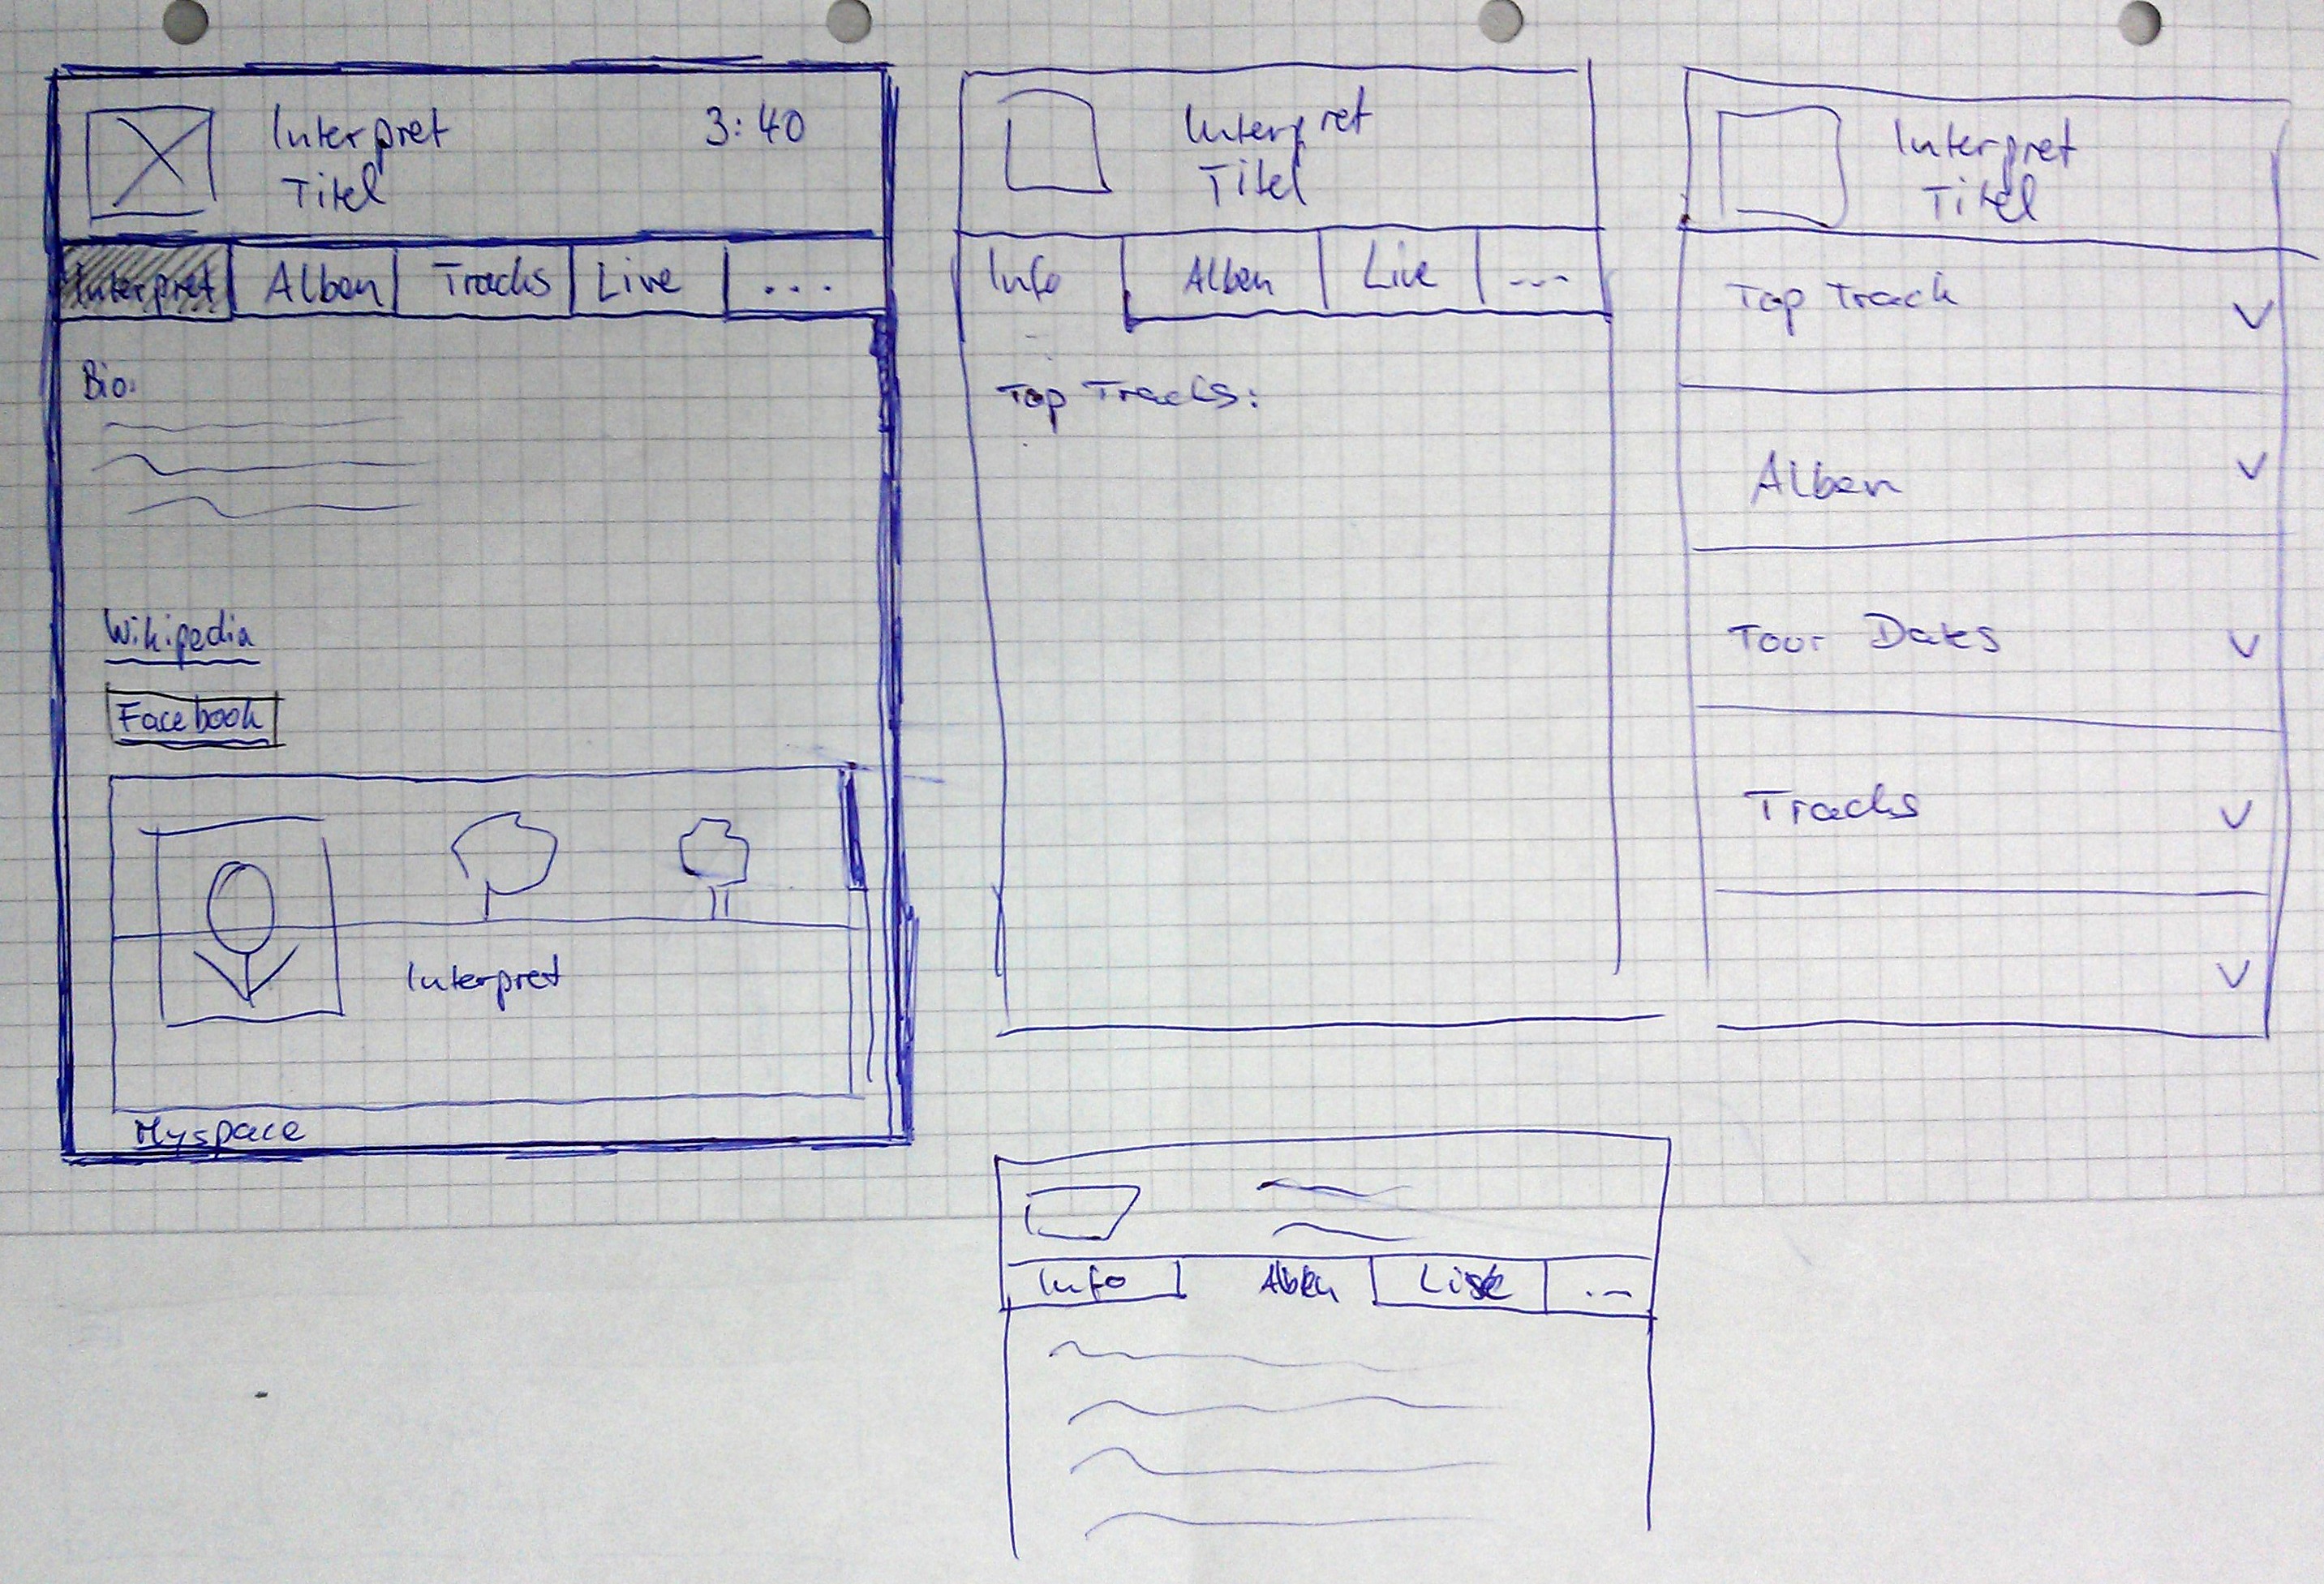 Interpret 3:40
Titel
Interpret Alben Tracks Live ...
Bio:
Wikipedia
Facebook
Interpret
Myspace
Interpret
Titel
Info Alben Live ...
Top Tracks:
Interpret
Titel
Top Track
Alben
Tour Dates
Tracks
Info Alben ...